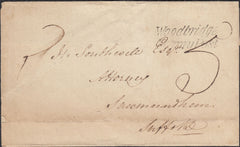 Woodbridge
Penny Post
H. Southwell Esqr
Attorney
Saxmundham
Suffolk